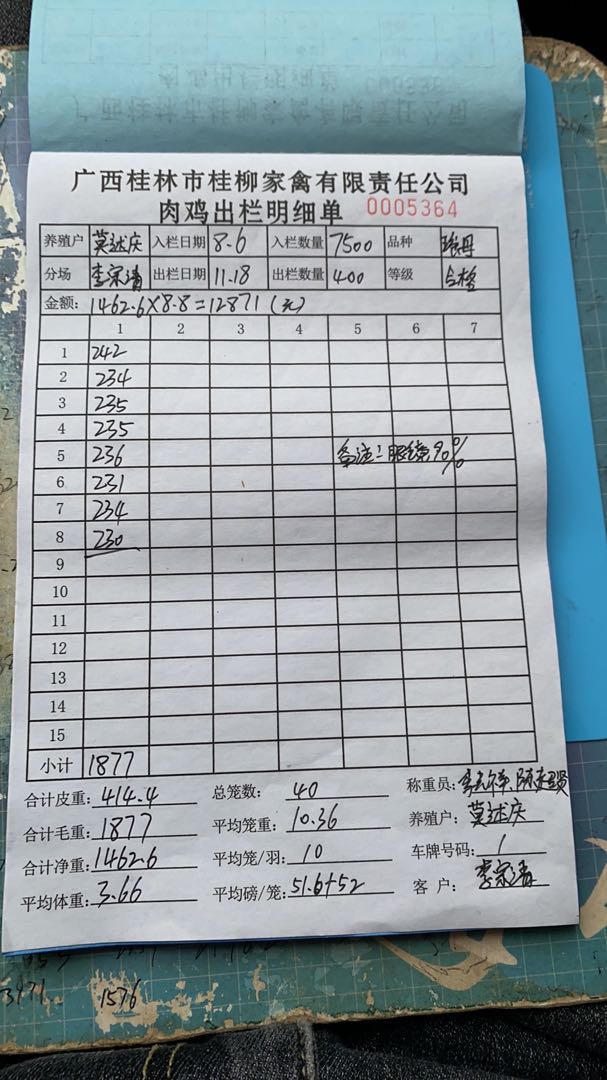 广西桂林市桂柳家禽有限责任公司
肉鸡出栏明细单 0005364
养殖户 莫述庆 入栏日期 8.6 入栏数量 7500 品种
分场 李宗清 出栏日期 11.18 出栏数量 400 等级 合格
金额: 1462.6×8.8=12871(元)
1 2 3 4 5 6 7
1 242
2 234
3 235
4 235
5 236 备注:眼 90%
6 231
7 234
8 230
9
10
11
12
13
14
15
小计 1877
合计皮重: 414.4 总笼数: 40 称重员:
合计毛重: 1877 平均笼重: 10.36 养殖户: 莫述庆
合计净重: 1462.6 平均笼/羽: 10 车牌号码: 1
平均体重: 3.66 平均磅/笼: 51.6+52 客户: 李宗清
1576